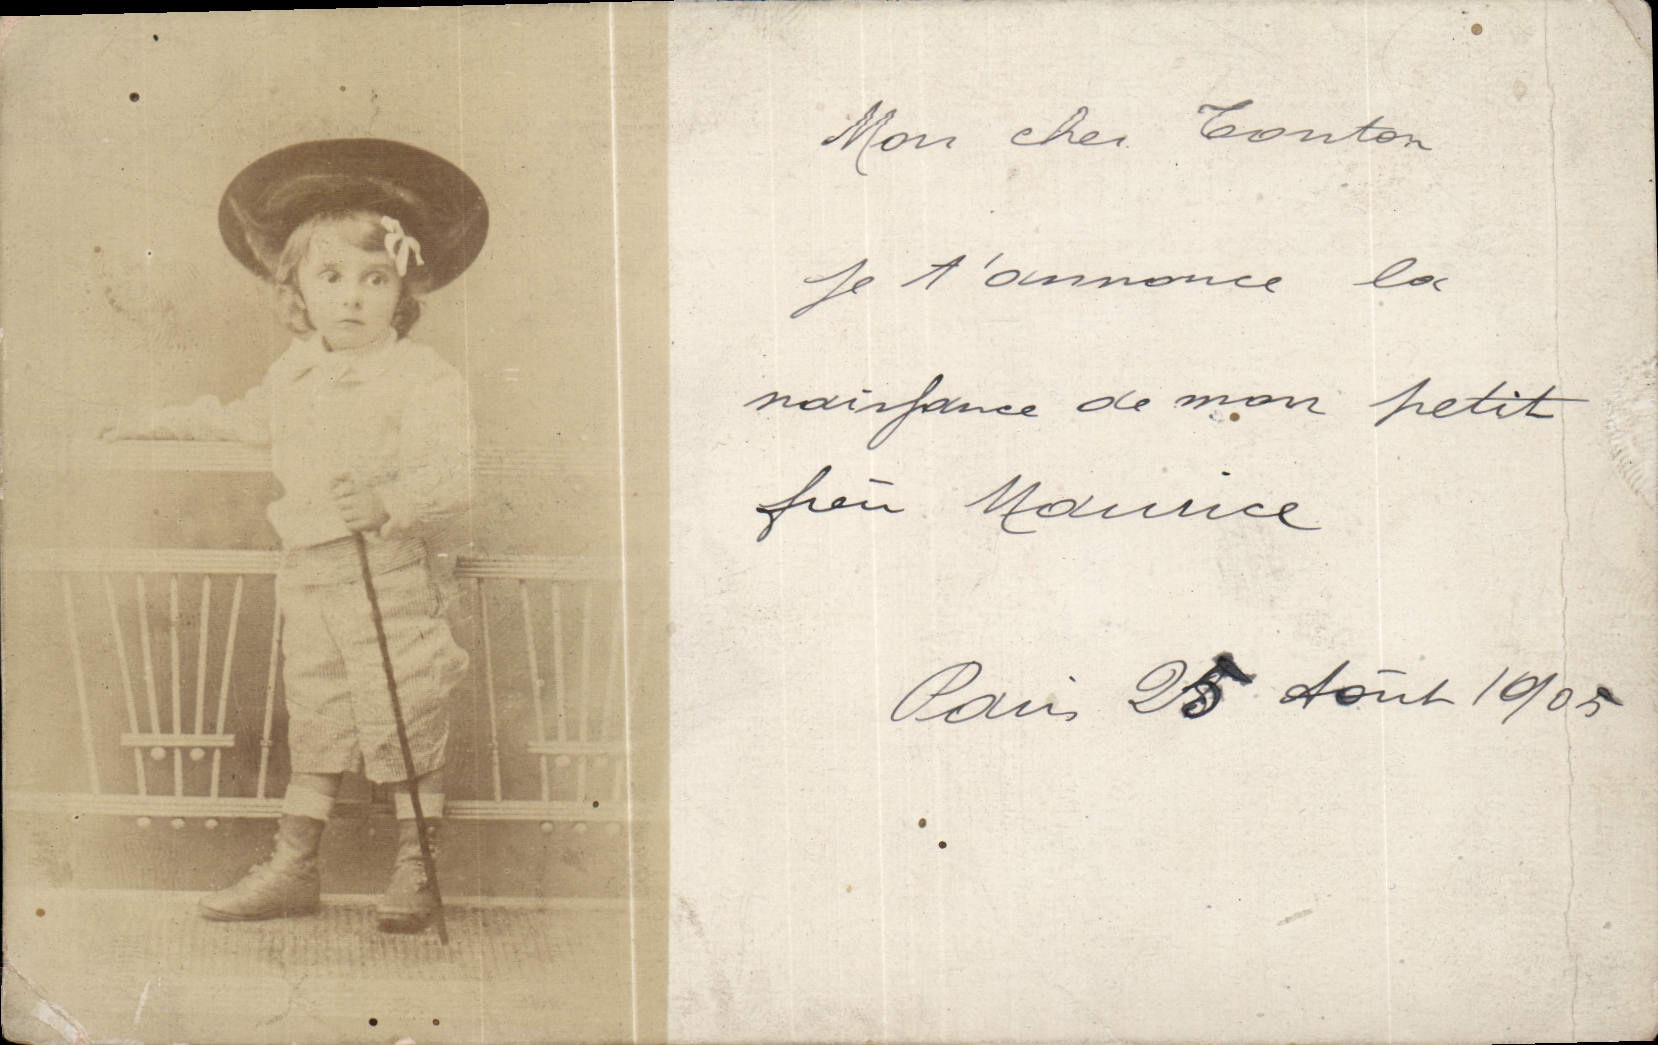 Mon cher Tonton
je t'annonce la
naissance de mon petit
frère Maurice
Paris 25 Août 1905